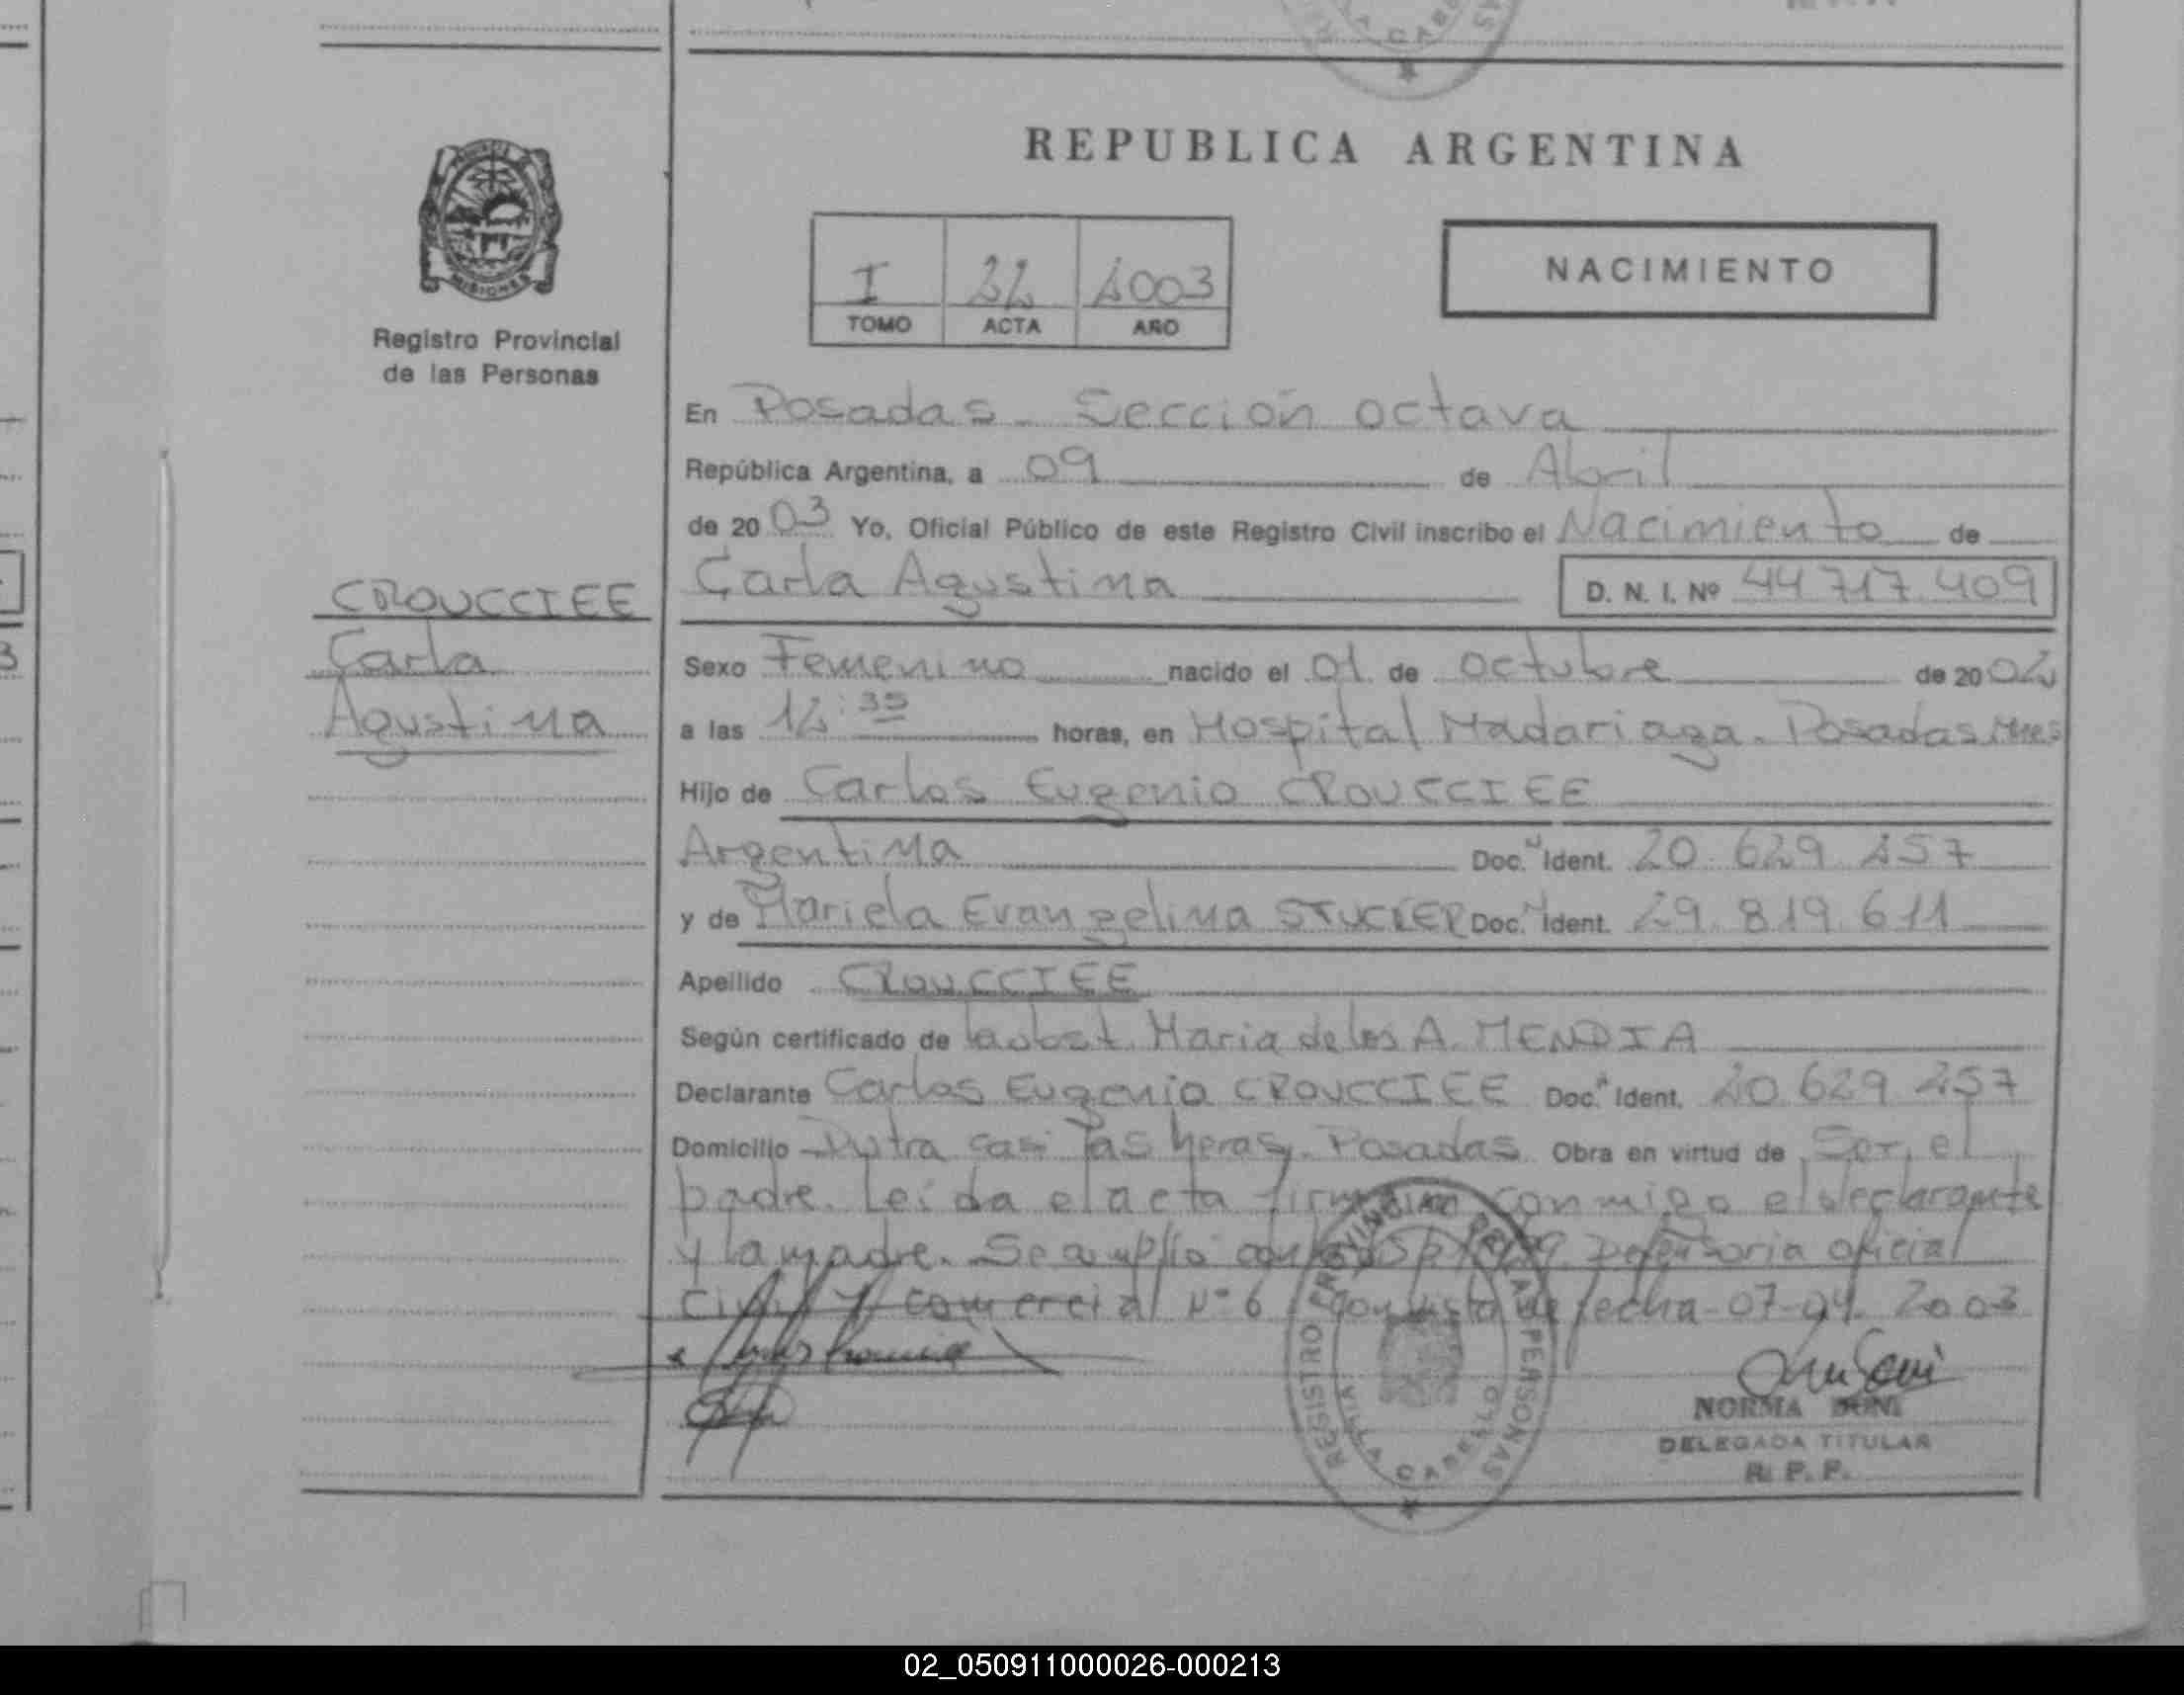 REPUBLICA ARGENTINA
NACIMIENTO
I 22 2003
TOMO ACTA AÑO
Registro Provincial
de las Personas
MISIONES
En Posadas - Sección octava
República Argentina, a 09 de Abril
de 2003 Yo, Oficial Público de este Registro Civil inscribo el Nacimiento de
Carla Agustina D. N. I. Nº 44 717.409
CROUCCIEE
Carla
Agustina
Sexo Femenino nacido el 01 de octubre de 2002
a las 12:35 horas, en Hospital Madariaga. Posadas Mnes
Hijo de Carlos Eugenio CROUCCIEE
Argentina Doc. Ident. 20.629.257
y de Mariela Evangelina STUCKER Doc. Ident. 29.819.611
Apellido CROUCCIEE
Según certificado de la obst. Maria de los A. MENDIA
Declarante Carlos Eugenio CROUCCIEE Doc. Ident. 20.629.257
Domicilio casi las heras. Posadas Obra en virtud de Ser el
padre. Leída el acta conmigo el declarante
y la madre. Se amplío Defensoria oficial
Civil y Comercial Nº 6 fecha 07-04-2003
REGISTRO PROVINCIAL DE LAS PERSONAS
VILLA CABELLO
NORMA
DELEGADA TITULAR
R. P. P.
02_050911000026-000213